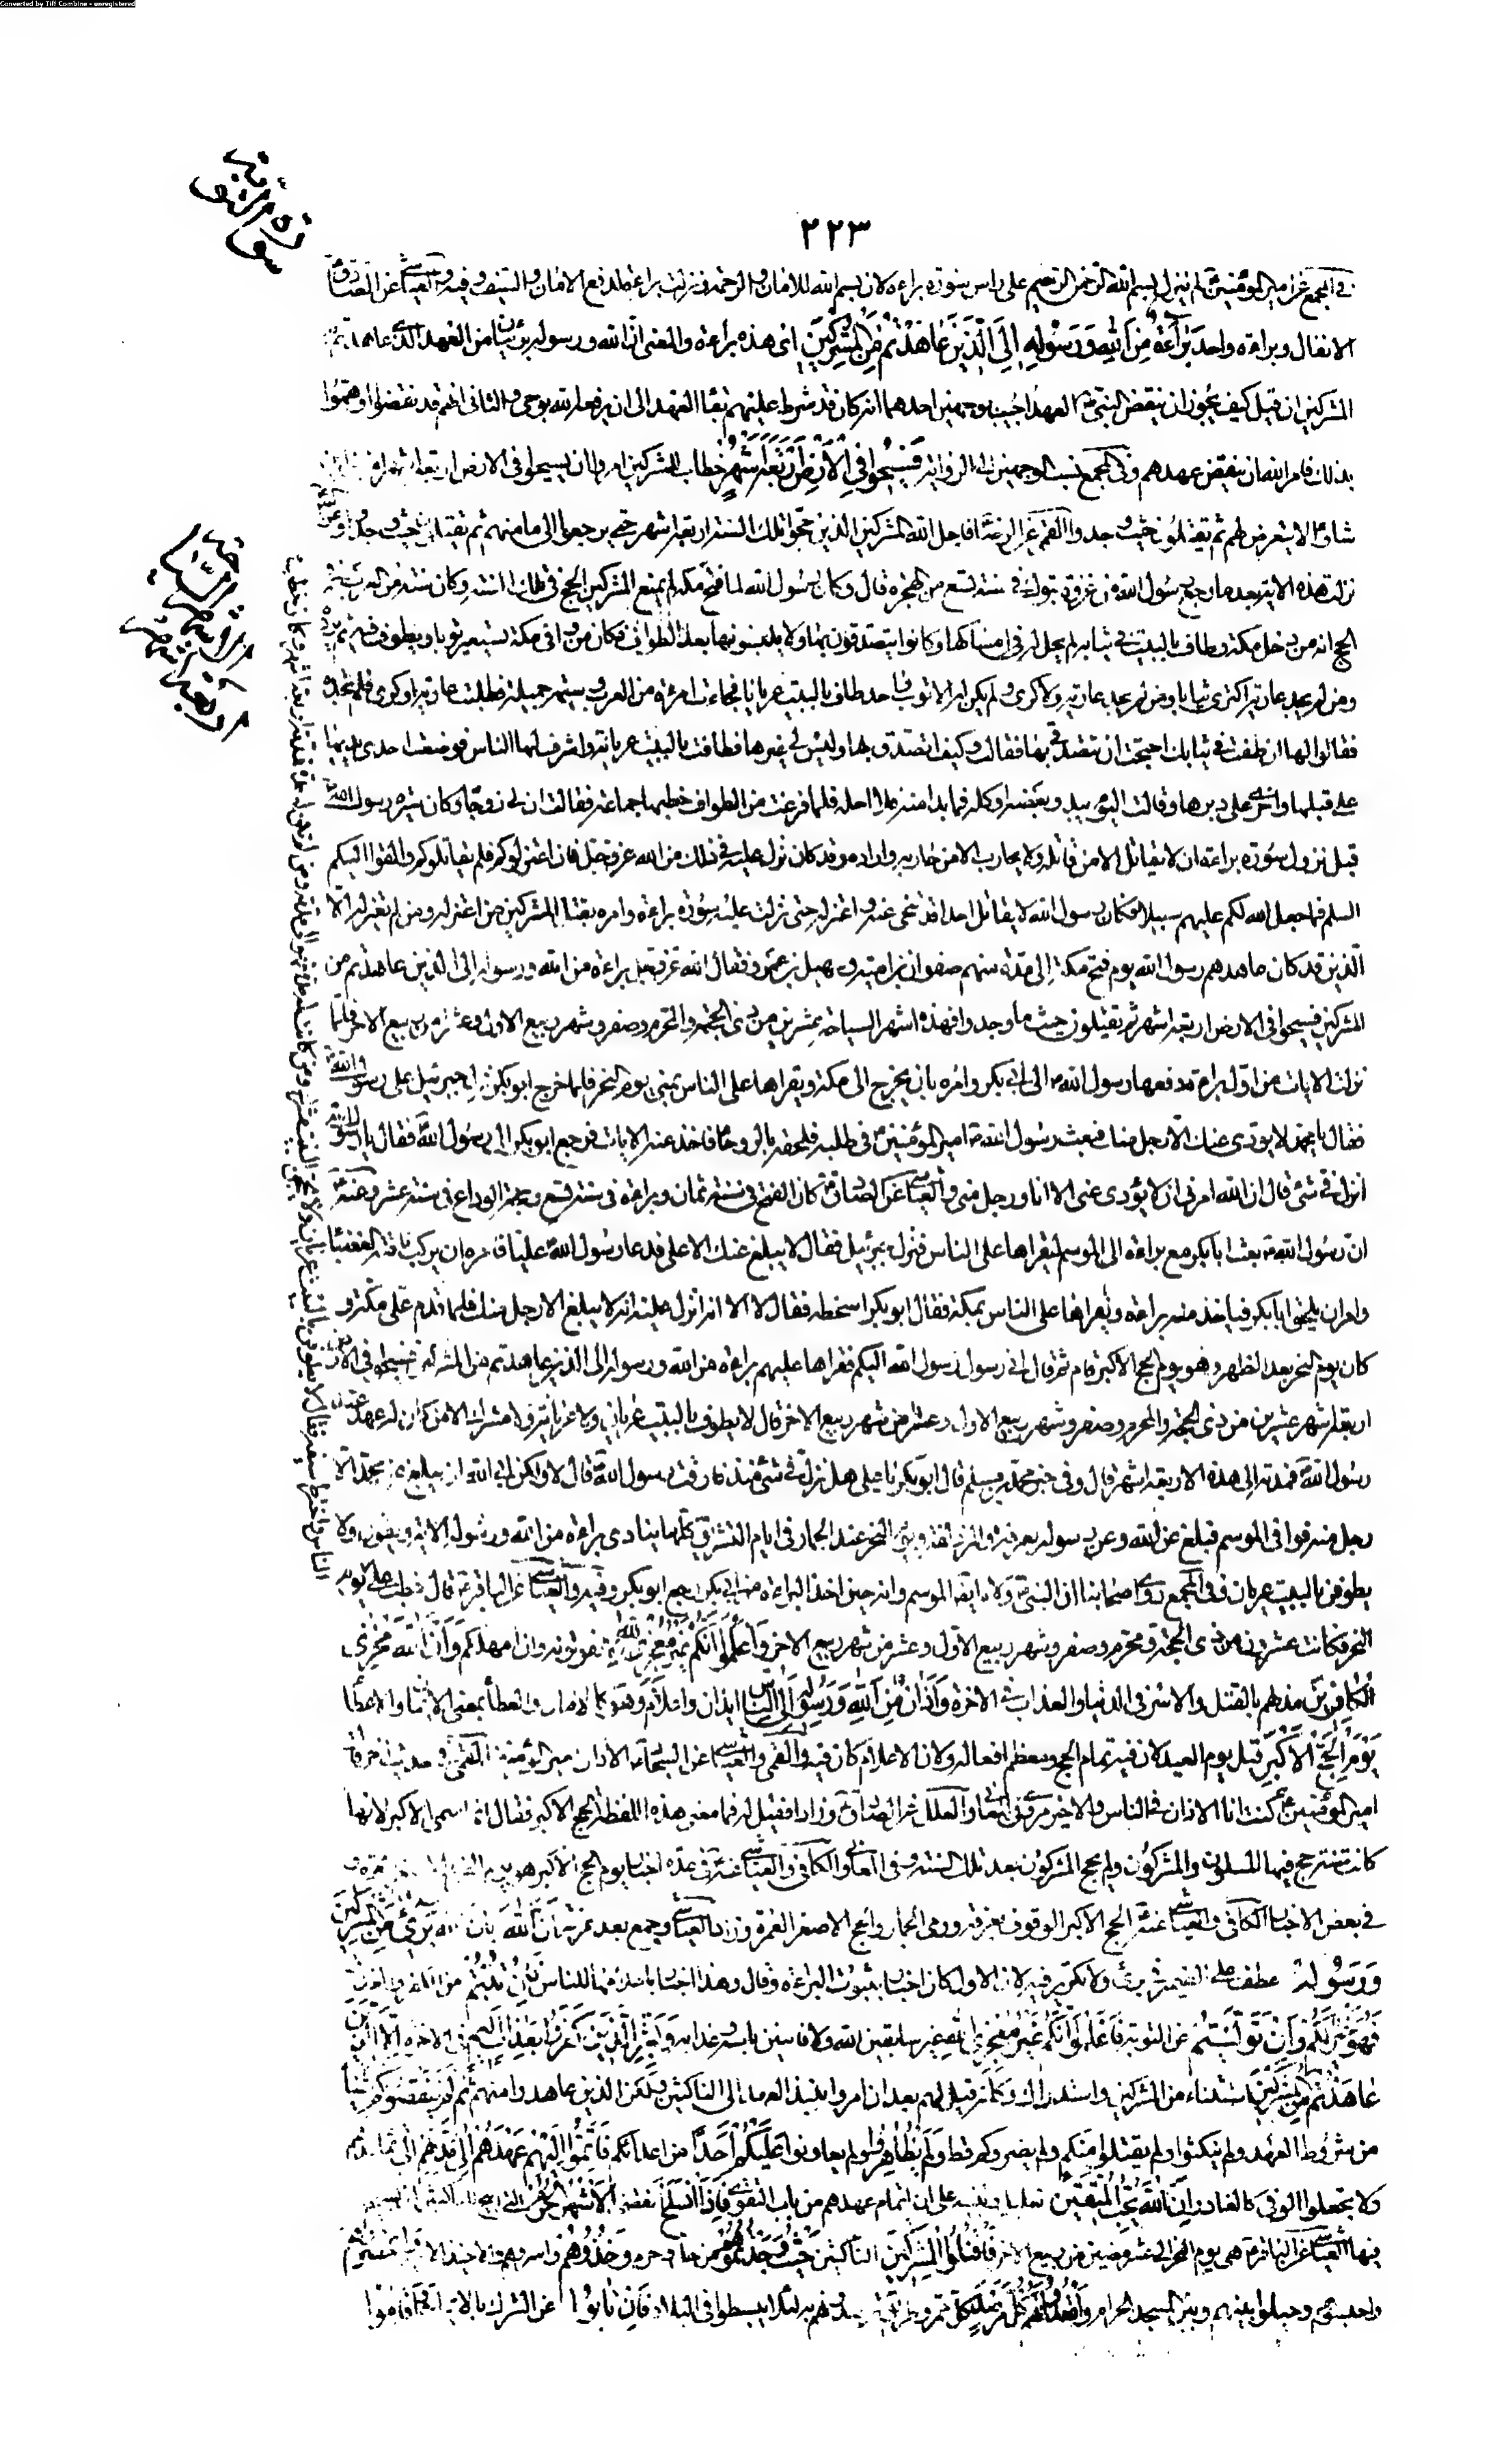 Converted by Tiff Combine - unregistered
سورة التوبة
٢٢٣
في المجمع عن أمير المؤمنين لم ينزل بسم الله الرحمن الرحيم على رأس سورة براءة لان بسم الله للامان والرحمة ونزلت براءة لدفع الامان والسيف وفيه والعياشي عن الصادق
الانفال وبراءة واحد بَرَاءَةٌ مِنَ اللهِ وَرَسُولِهِ إِلَى الَّذِينَ عَاهَدْتُمْ مِنَ الْمُشْرِكِينَ اي هذه براءة والمعنى ان الله ورسوله بريئان من العهد الذي عاهدتم به
المشركين ان قيل كيف يجوز ان ينقض النبي العهد اجيب بوجهين احدهما انه كان قد شرط عليهم بقاء العهد الى ان يرفعه الله بوحي والثاني انهم قد نقضوا او همّوا
بذلك فامر الله ان ينقض عهدهم وفي المجمع نسب الوجهين الى الرواية فَسِيحُوا فِي الْأَرْضِ أَرْبَعَةَ أَشْهُرٍ خطاب للمشركين امروا ان يسيحوا في الارض اربعة اشهر
شاؤا لا يتعرض لهم ثم يقتلون حيث وجدوا القمي عن الرضا فاجل الله المشركين الذين حجّوا تلك السنة اربعة اشهر حتى يرجعوا الى مامنهم ثم يقتلون حيث وجدوا وعن
نزلت هذه الآية بعد ما رجع رسول الله من غزوة تبوك في سنة تسع من الهجرة قال وكان رسول الله لما فتح مكة لم يمنع المشركين الحج في تلك السنة وكان سنة من العرب في
الحج انه من دخل مكة وطاف بالبيت في ثيابه لم يحل له امساكها وكانوا يتصدقون بها ولا يلبسونها بعد الطواف فكان من وافى مكة يستعير ثوبا ويطوف فيه ثم يرده
ومن لم يجد عارية اكترى ثيابا ومن لم يجد عارية ولا كرى ولم يكن له الا ثوب واحد طاف بالبيت عريانا فجاءت امرءة من العرب وسيمة جميلة فطلبت عارية او كرى فلم تجده
فقالوا لها ان طفت في ثيابك احتجت ان تتصدقي بها فقالت وكيف اتصدق بها وليس لي غيرها فطافت بالبيت عريانة واشرف لها الناس فوضعت احدى يديها
على قبلها واخرى على دبرها وقالت اليوم يبدو بعضه او كله فما بدا منه فلا احله فلما فرغت من الطواف خطبها جماعة فقالت ان لي زوجا وكان سيرة رسول الله
قبل نزول سورة براءة ان لا يقاتل الا من قاتله ولا يحارب الا من حاربه واراده وقد كان نزل عليه في ذلك من الله عز وجل فان اعتزلوكم فلم يقاتلوكم والقوا اليكم
السلم فما جعل الله لكم عليهم سبيلا فكان رسول الله لا يقاتل احدا قد تنحى عنه واعتزله حتى نزلت عليه سورة براءة وامره بقتل المشركين من اعتزله ومن لم يعتزله الا
الذين قد كان عاهدهم رسول الله يوم فتح مكة الى مدة منهم صفوان بن امية وسهيل بن عمرو فقال الله عز وجل براءة من الله ورسوله الى الذين عاهدتم من
المشركين فسيحوا في الارض اربعة اشهر ثم يقتلون حيث ما وجدوا فهذه اشهر السياحة عشرين من ذي الحجة والمحرم وصفر وشهر ربيع الاول وعشرا من ربيع الاخر فلما
نزلت الآيات من اول براءة دفعها رسول الله الى ابي بكر وامره بان يخرج الى مكة ويقراها على الناس بمنى يوم النحر فلما خرج ابو بكر نزل جبرئيل على رسول الله
فقال يا محمد لا يؤدي عنك الا رجل منك فبعث رسول الله امير المؤمنين في طلبه فلحقه بالروحا فاخذ منه الآيات فرجع ابو بكر الى رسول الله فقال يا رسول الله
انزل في شئ قال ان الله امرني ان لا يؤدي عني الا انا او رجل مني والعياشي عن الصادق كان الفتح في سنة ثمان وبراءة في سنة تسع وحجة الوداع في سنة عشر وعنه
ان رسول الله بعث ابا بكر مع براءة الى الموسم ليقراها على الناس فنزل جبرئيل فقال لا يبلغ عنك الا علي فدعا رسول الله عليا فامره ان يركب ناقته العضباء
وامره ان يلحق ابا بكر فياخذ منه براءة ويقراها على الناس بمكة فقال ابو بكر اسخطه فقال لا الا انه انزل عليه انه لا يبلغ الا رجل منك فلما قدم على مكة و
كان يوم النحر بعد الظهر وهو يوم الحج الاكبر قام ثم قال اني رسول رسول الله اليكم فقراها عليهم براءة من الله ورسوله الى الذين عاهدتم من المشركين فسيحوا في الارض
اربعة اشهر عشرين من ذي الحجة والمحرم وصفر وشهر ربيع الاول وعشرا من شهر ربيع الاخر قال لا يطوف بالبيت عريان ولا عريانة ولا مشرك الا من كان له عهد عند
رسول الله فمدته الى هذه الاربعة اشهر قال وفي خبر محمد بن مسلم قال ابو بكر يا علي هل نزل في شئ منذ فارقت رسول الله قال لا ولكن ابى الله ان يبلغ عن محمد الا
رجل منه فوافى الموسم فبلغ عن الله وعن رسوله بعرفة والمزدلفة ويوم النحر عند الجمار في ايام التشريق كلها ينادي براءة من الله ورسوله الآية ويقول ولا
يطوفن بالبيت عريان وفي المجمع روى اصحابنا ان النبي ولاه ايضا الموسم وانه حين اخذ البراءة من ابي بكر رجع ابو بكر وفيه والعياشي عن الباقر قال خطب علي يوم
النحر فكانت عشرون من ذي الحجة ومحرم وصفر وشهر ربيع الاول وعشر من شهر ربيع الاخر وَاعْلَمُوا أَنَّكُمْ غَيْرُ مُعْجِزِي اللهِ لا تفوتونه وان امهلكم وَأَنَّ اللهَ مُخْزِي
الْكَافِرِينَ مذلهم بالقتل والاسر في الدنيا والعذاب في الاخرة وَأَذَانٌ مِنَ اللهِ وَرَسُولِهِ إِلَى النَّاسِ ايذان واعلام
يَوْمَ الْحَجِّ الْأَكْبَرِ قيل يوم العيد لان فيه تمام الحج ومعظم افعاله ولان الاعلام كان فيه والقمي والعياشي عن السجاد الاذان امير المؤمنين
امير المؤمنين كنت انا الاذان في الناس والاخير مروي في المعاني والعلل عن الصادق وزاد فقيل له فما معنى هذه اللفظة الحج الاكبر فقال انما سمى الاكبر لانها
كانت سنة حج فيها المسلمون والمشركون ولم يحج المشركون بعد تلك السنة وفي المعاني والكافي والعياشي عنه في عدة اخبار يوم الحج الاكبر هو يوم النحر
في بعض الاخبار الكافي والعياشي عنه الحج الاكبر الوقوف بعرفة ورمي الجمار والحج الاصغر العمرة وزاد العياشي وجمع بعد عرفة أَنَّ اللهَ بان الله بَرِيءٌ مِنَ الْمُشْرِكِينَ
وَرَسُولُهُ عطف على الضمير في برئ ولا تكرير فيه لان الاول كان اخبارا بثبوت البراءة وهذا اخبار باعلامها للناس فَإِنْ تُبْتُمْ
فَهُوَ خَيْرٌ لَكُمْ وَإِنْ تَوَلَّيْتُمْ عن التوبة فَاعْلَمُوا أَنَّكُمْ غَيْرُ مُعْجِزِي اللهِ غير سابقين الله ولا فايتين باسه وعذابه وَبَشِّرِ الَّذِينَ كَفَرُوا بِعَذَابٍ أَلِيمٍ في الاخرة إِلَّا الَّذِينَ
عَاهَدْتُمْ مِنَ الْمُشْرِكِينَ استثناء من المشركين واستدراك وكانه قيل لهم بعد ان امروا بنبذ العهد الى الناكثين ولكن الذين عاهدوا منهم ثُمَّ لَمْ يَنْقُصُوكُمْ شَيْئًا
من شروط العهد ولم ينكثوا ولم يقتلوا منكم ولم يضروكم قط وَلَمْ يُظَاهِرُوا ولم يعاونوا عَلَيْكُمْ أَحَدًا من اعدائكم فَأَتِمُّوا إِلَيْهِمْ عَهْدَهُمْ إِلَى مُدَّتِهِمْ الى تمام مدتهم
ولا تجعلوا الوفي كالغادر إِنَّ اللهَ يُحِبُّ الْمُتَّقِينَ تعليل وتنبيه على ان اتمام عهدهم من باب التقوى فَإِذَا انْسَلَخَ انقضى الْأَشْهُرُ الْحُرُمُ
فيها العياشي عن الباقر هي يوم النحر الى عشر مضين من ربيع الاخر فَاقْتُلُوا الْمُشْرِكِينَ الناكثين حَيْثُ وَجَدْتُمُوهُمْ من حل وحرم وَخُذُوهُمْ واسروهم والاخيذ الاسير وَاحْصُرُوهُمْ
واحبسوهم وحيلوا بينهم وبين المسجد الحرام وَاقْعُدُوا لَهُمْ كُلَّ مَرْصَدٍ كل ممر وطريق ترصدونهم به لئلا يبسطوا في البلاد فَإِنْ تَابُوا عن الشرك بالايمان وَأَقَامُوا